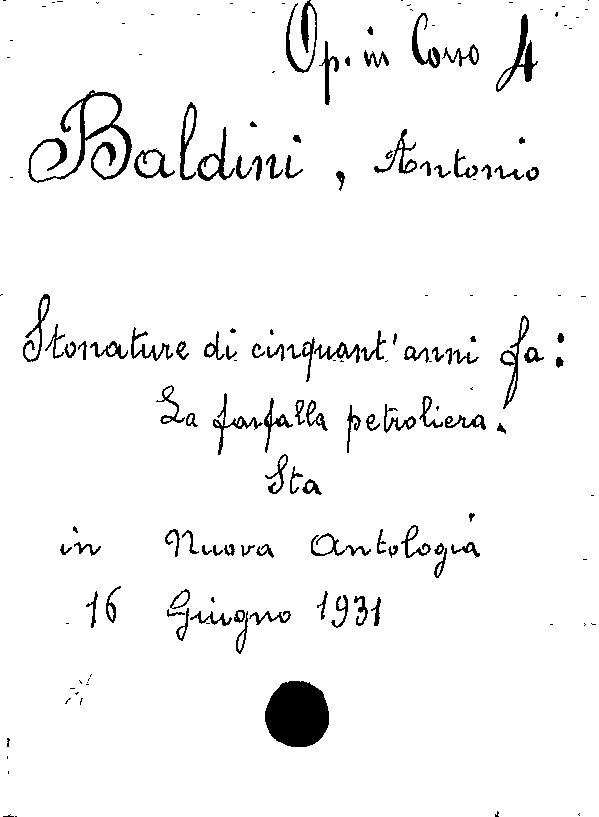 Op. in Corso 4
Baldini, Antonio
Stonature di cinquant'anni fa:
La farfalla petroliera.
Sta
in Nuova Antologia
16 Giugno 1931